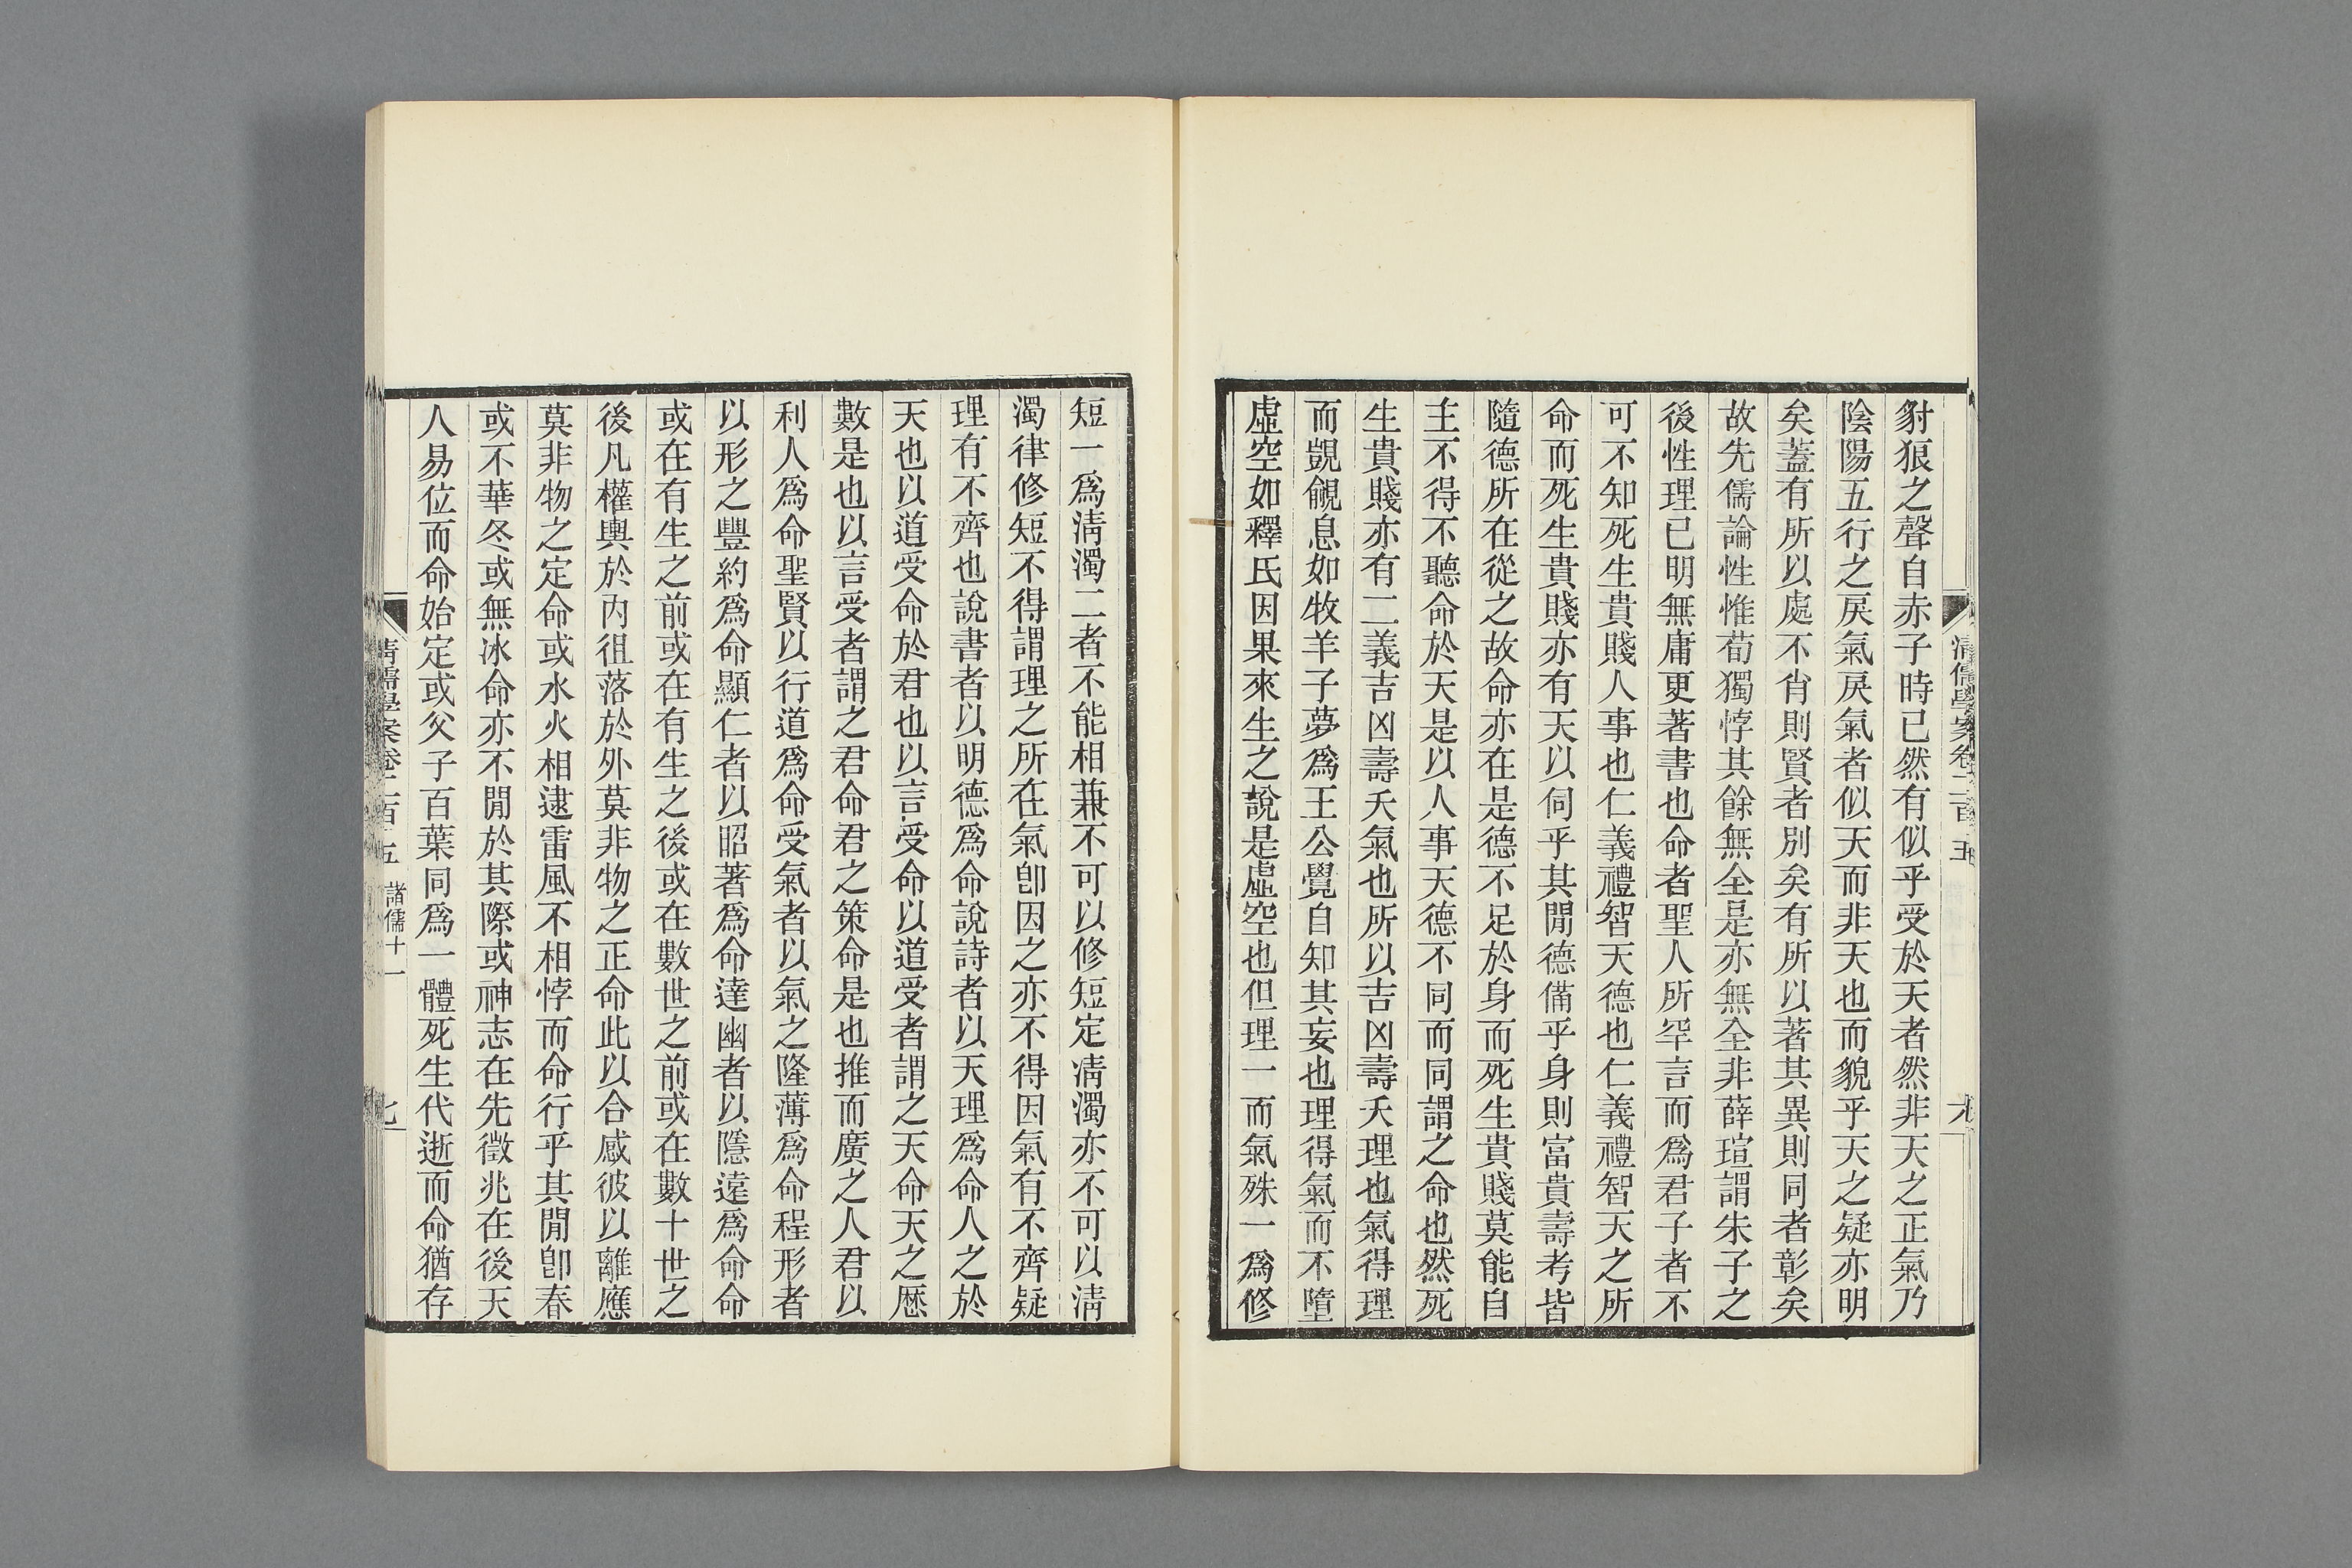 豺狼之聲自赤子時已然有似乎受於天者然非天之正氣乃
陰陽五行之戾氣戾氣者似天而非天也而貌乎天之疑亦明
矣蓋有所以處不肖則賢者別矣有所以著其異則同者彰矣
故先儒論性惟荀獨悖其餘無全是亦無全非薛瑄謂朱子之
後性理已明無庸更著書也命者聖人所罕言而爲君子者不
可不知死生貴賤人事也仁義禮智天德也仁義禮智天之所
命而死生貴賤亦有天以伺乎其閒德備乎身則富貴壽考皆
隨德所在從之故命亦在是德不足於身而死生貴賤莫能自
主不得不聽命於天是以人事天德不同而同謂之命也然死
生貴賤亦有二義吉凶壽夭氣也所以吉凶壽夭理也氣得理
而覬覦息如牧羊子夢爲王公覺自知其妄也理得氣而不墮
虛空如釋氏因果來生之說是虛空也但理一而氣殊一爲修
短一爲淸濁二者不能相兼不可以修短定淸濁亦不可以淸
濁律修短不得謂理之所在氣卽因之亦不得因氣有不齊疑
理有不齊也說書者以明德爲命說詩者以天理爲命人之於
天也以道受命於君也以言受命以道受者謂之天命天之厯
數是也以言受者謂之君命君之策命是也推而廣之人君以
利人爲命聖賢以行道爲命受氣者以氣之隆薄爲命程形者
以形之豐約爲命顯仁者以昭著爲命達幽者以隱遠爲命命
或在有生之前或在有生之後或在數世之前或在數十世之
後凡權輿於內徂落於外莫非物之正命此以合感彼以離應
莫非物之定命或水火相逮雷風不相悖而命行乎其閒卽春
或不華冬或無冰命亦不閒於其際或神志在先徵兆在後天
人易位而命始定或父子百葉同爲一體死生代逝而命猶存
淸儒學案卷二百五 諸儒十一